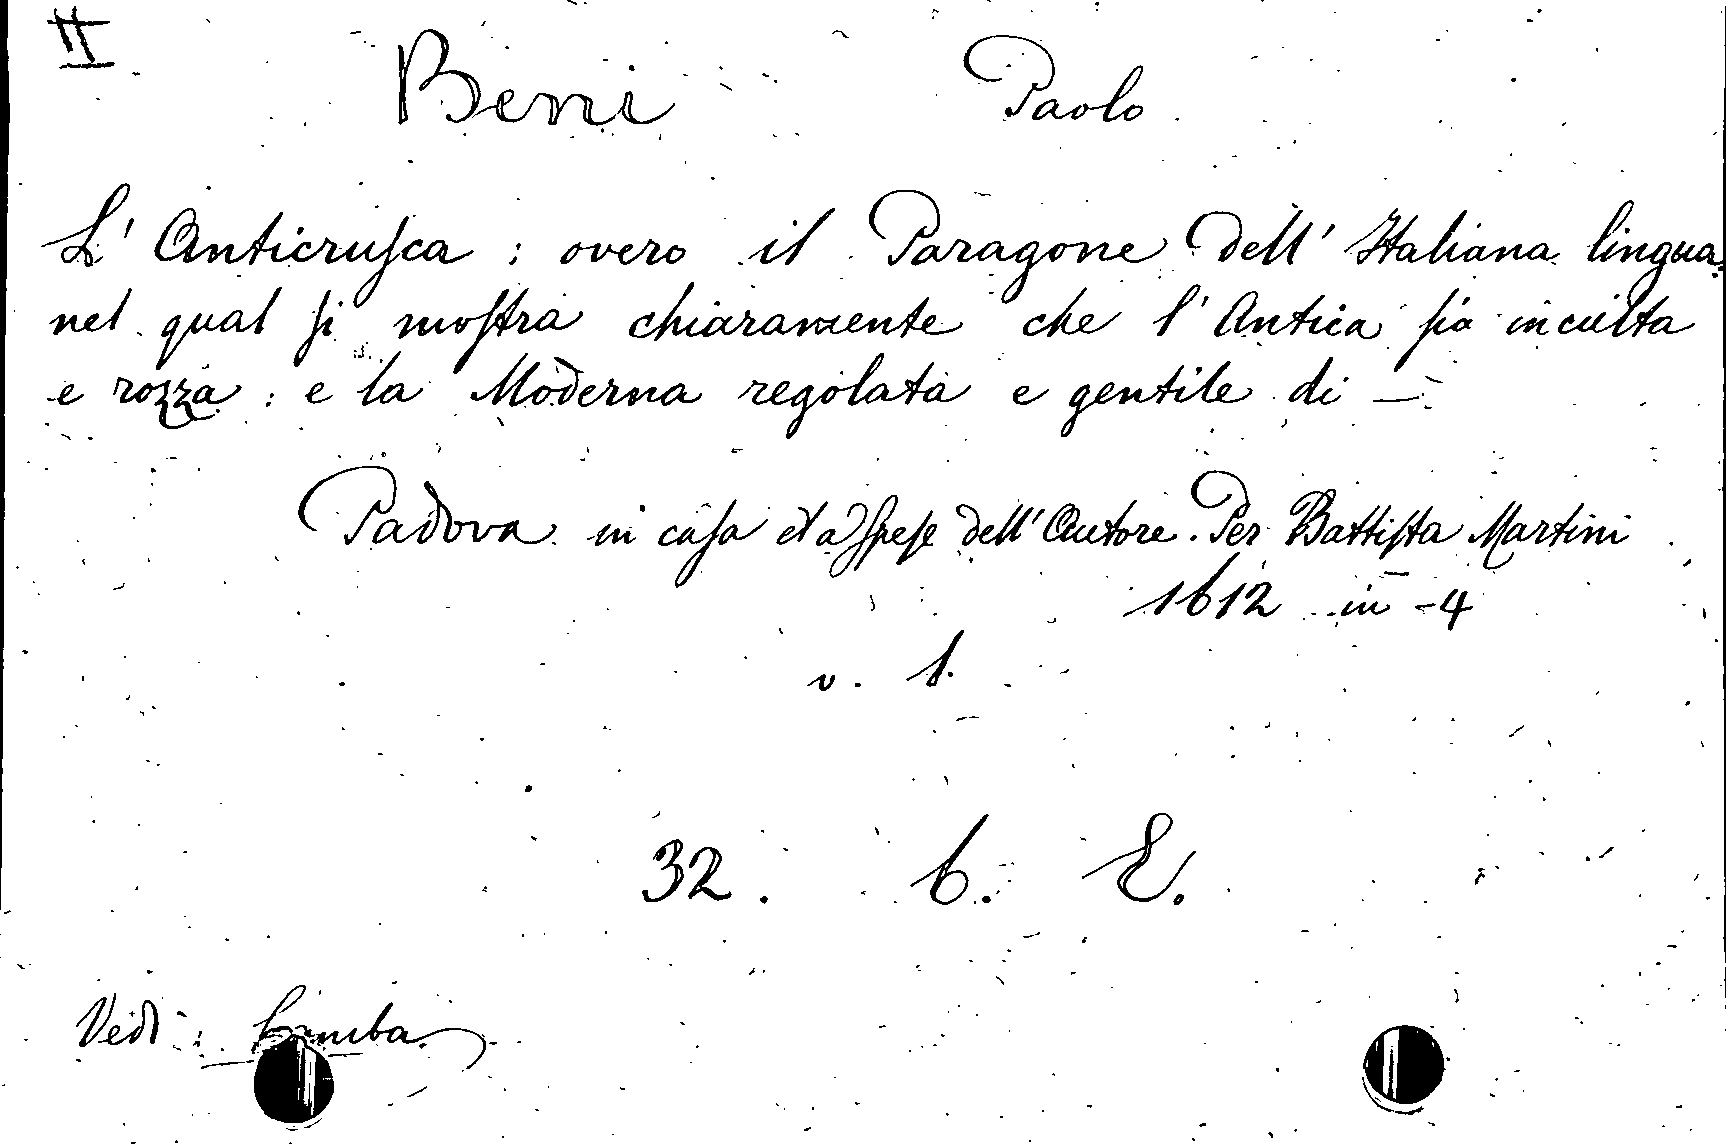 II
Beni Paolo
L' Anticrusca : overo il Paragone dell' Italiana lingua:
nel qual si mostra chiaramente che l' Antica sia inculta
e rozza : e la Moderna regolata e gentile di —
Padova in casa et a spese dell' Autore. Per Battista Martini
1612 in -4
v. 1.
32. 6. E.
Vedi : Gamba